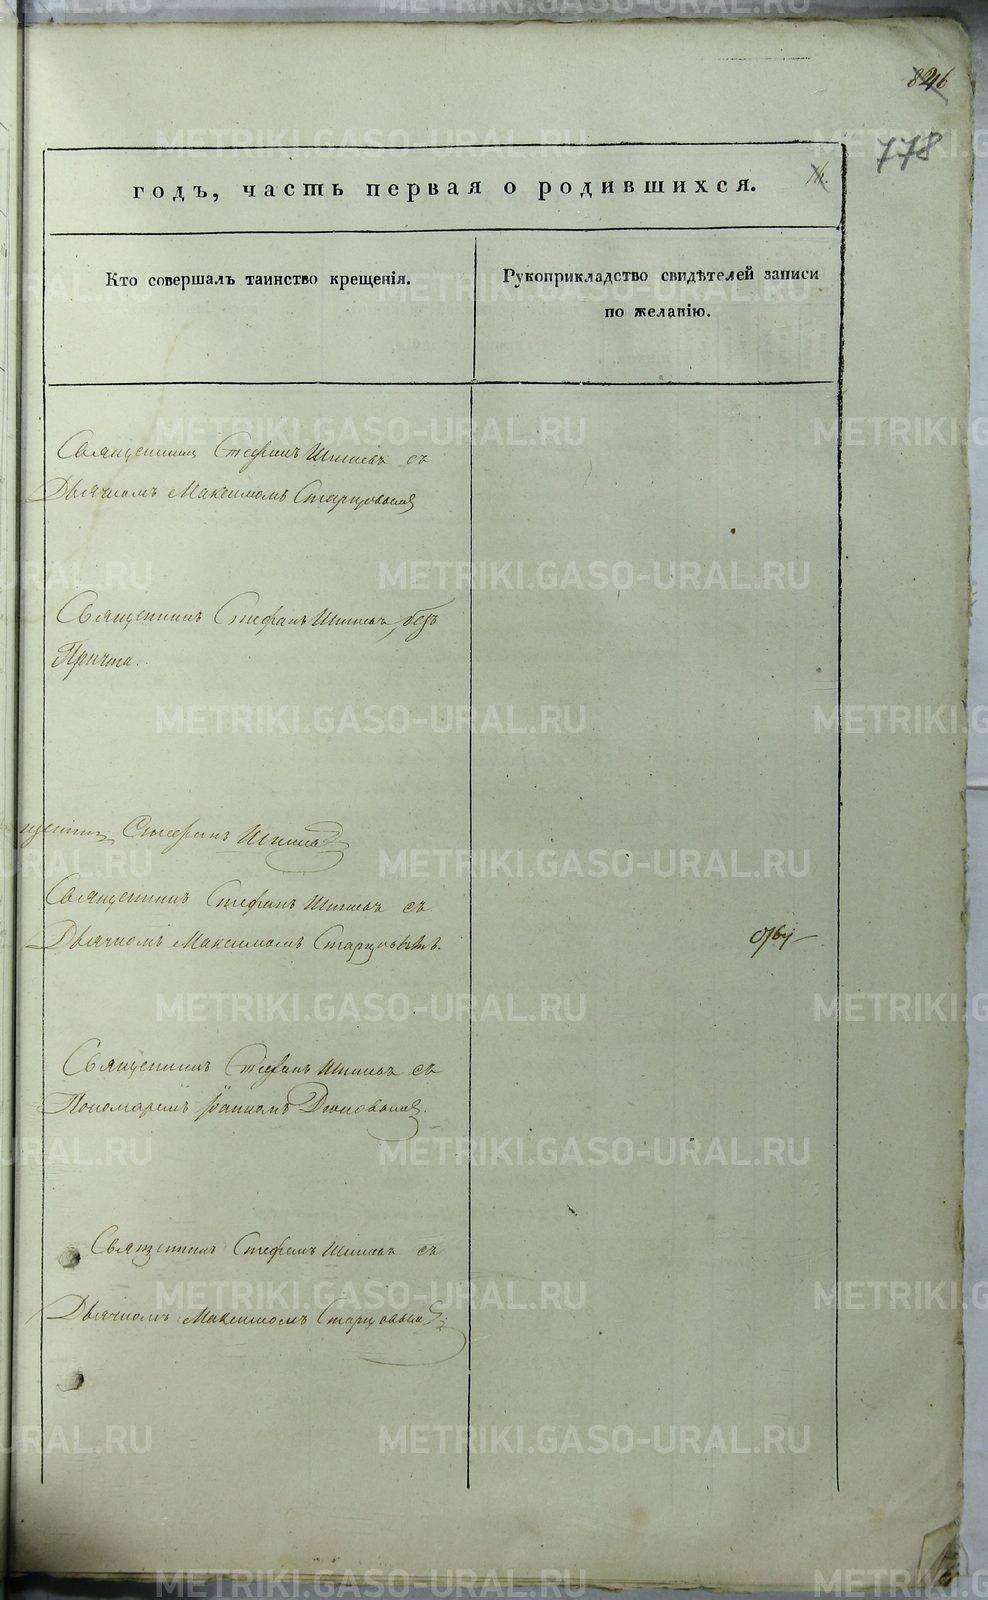 778
годъ, часть первая о родившихся.
Кто совершалъ таинство крещенія.
Рукоприкладство свидѣтелей записи
по желанію.
Священникъ Стефанъ Шишевъ съ
Дьячкомъ Максимомъ Старцовымъ
Священникъ Стефанъ Шишевъ, безъ
Причта.
Стефанъ Шишевъ
Священникъ Стефанъ Шишевъ съ
Дьячкомъ Максимомъ Старцовымъ.
Священникъ Стефанъ Шишевъ съ
Пономаремъ Іоанномъ
Священникъ Стефанъ Шишевъ съ
Дьячкомъ Максимомъ Старцовымъ
METRIKI.GASO-URAL.RU